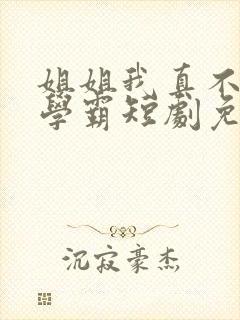 姐姐我真不
學霸短劇免
沉寂豪杰